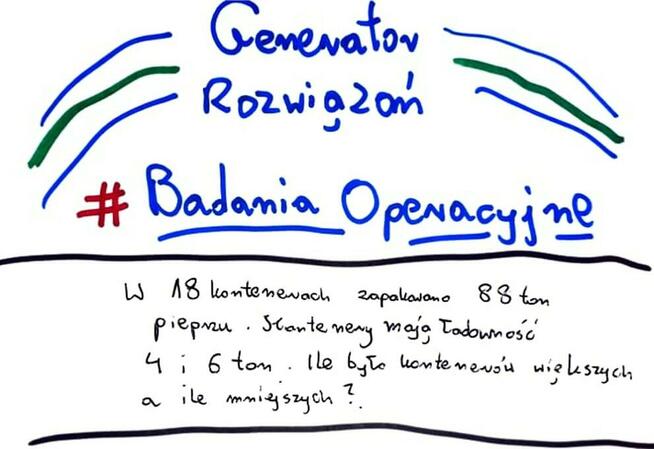 Generator
Rozwiązań
# Badania Operacyjne
W 18 kontenerach zapakowano 88 ton
pieprzu. Kontenery mają ładowność
4 i 6 ton. Ile było kontenerów większych
a ile mniejszych?